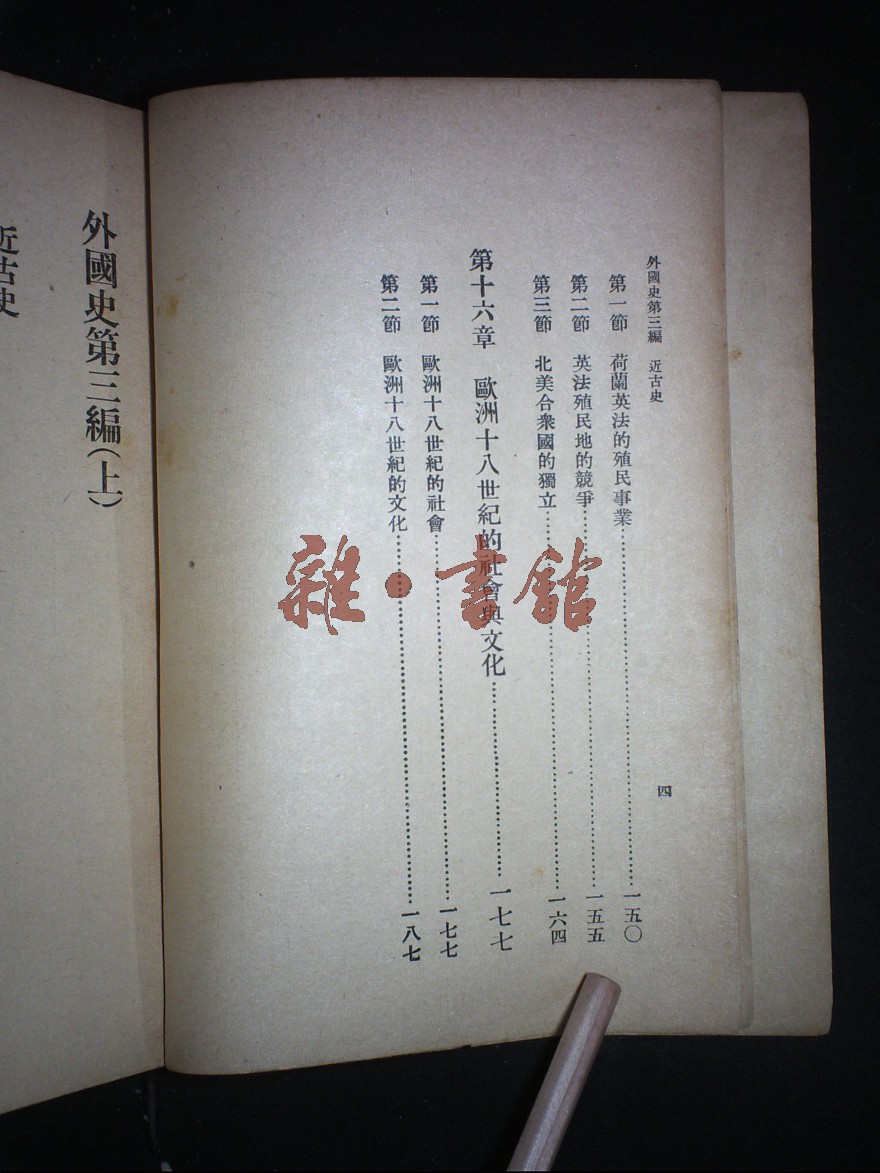 外國史第三編　近古史
四
第一節　荷蘭英法的殖民事業……一五〇
第二節　英法殖民地的競爭……一五五
第三節　北美合衆國的獨立……一六四
第十六章　歐洲十八世紀的社會與文化……一七七
第一節　歐洲十八世紀的社會……一七七
第二節　歐洲十八世紀的文化……一八七
外國史第三編(上)
近古史
雜·書館